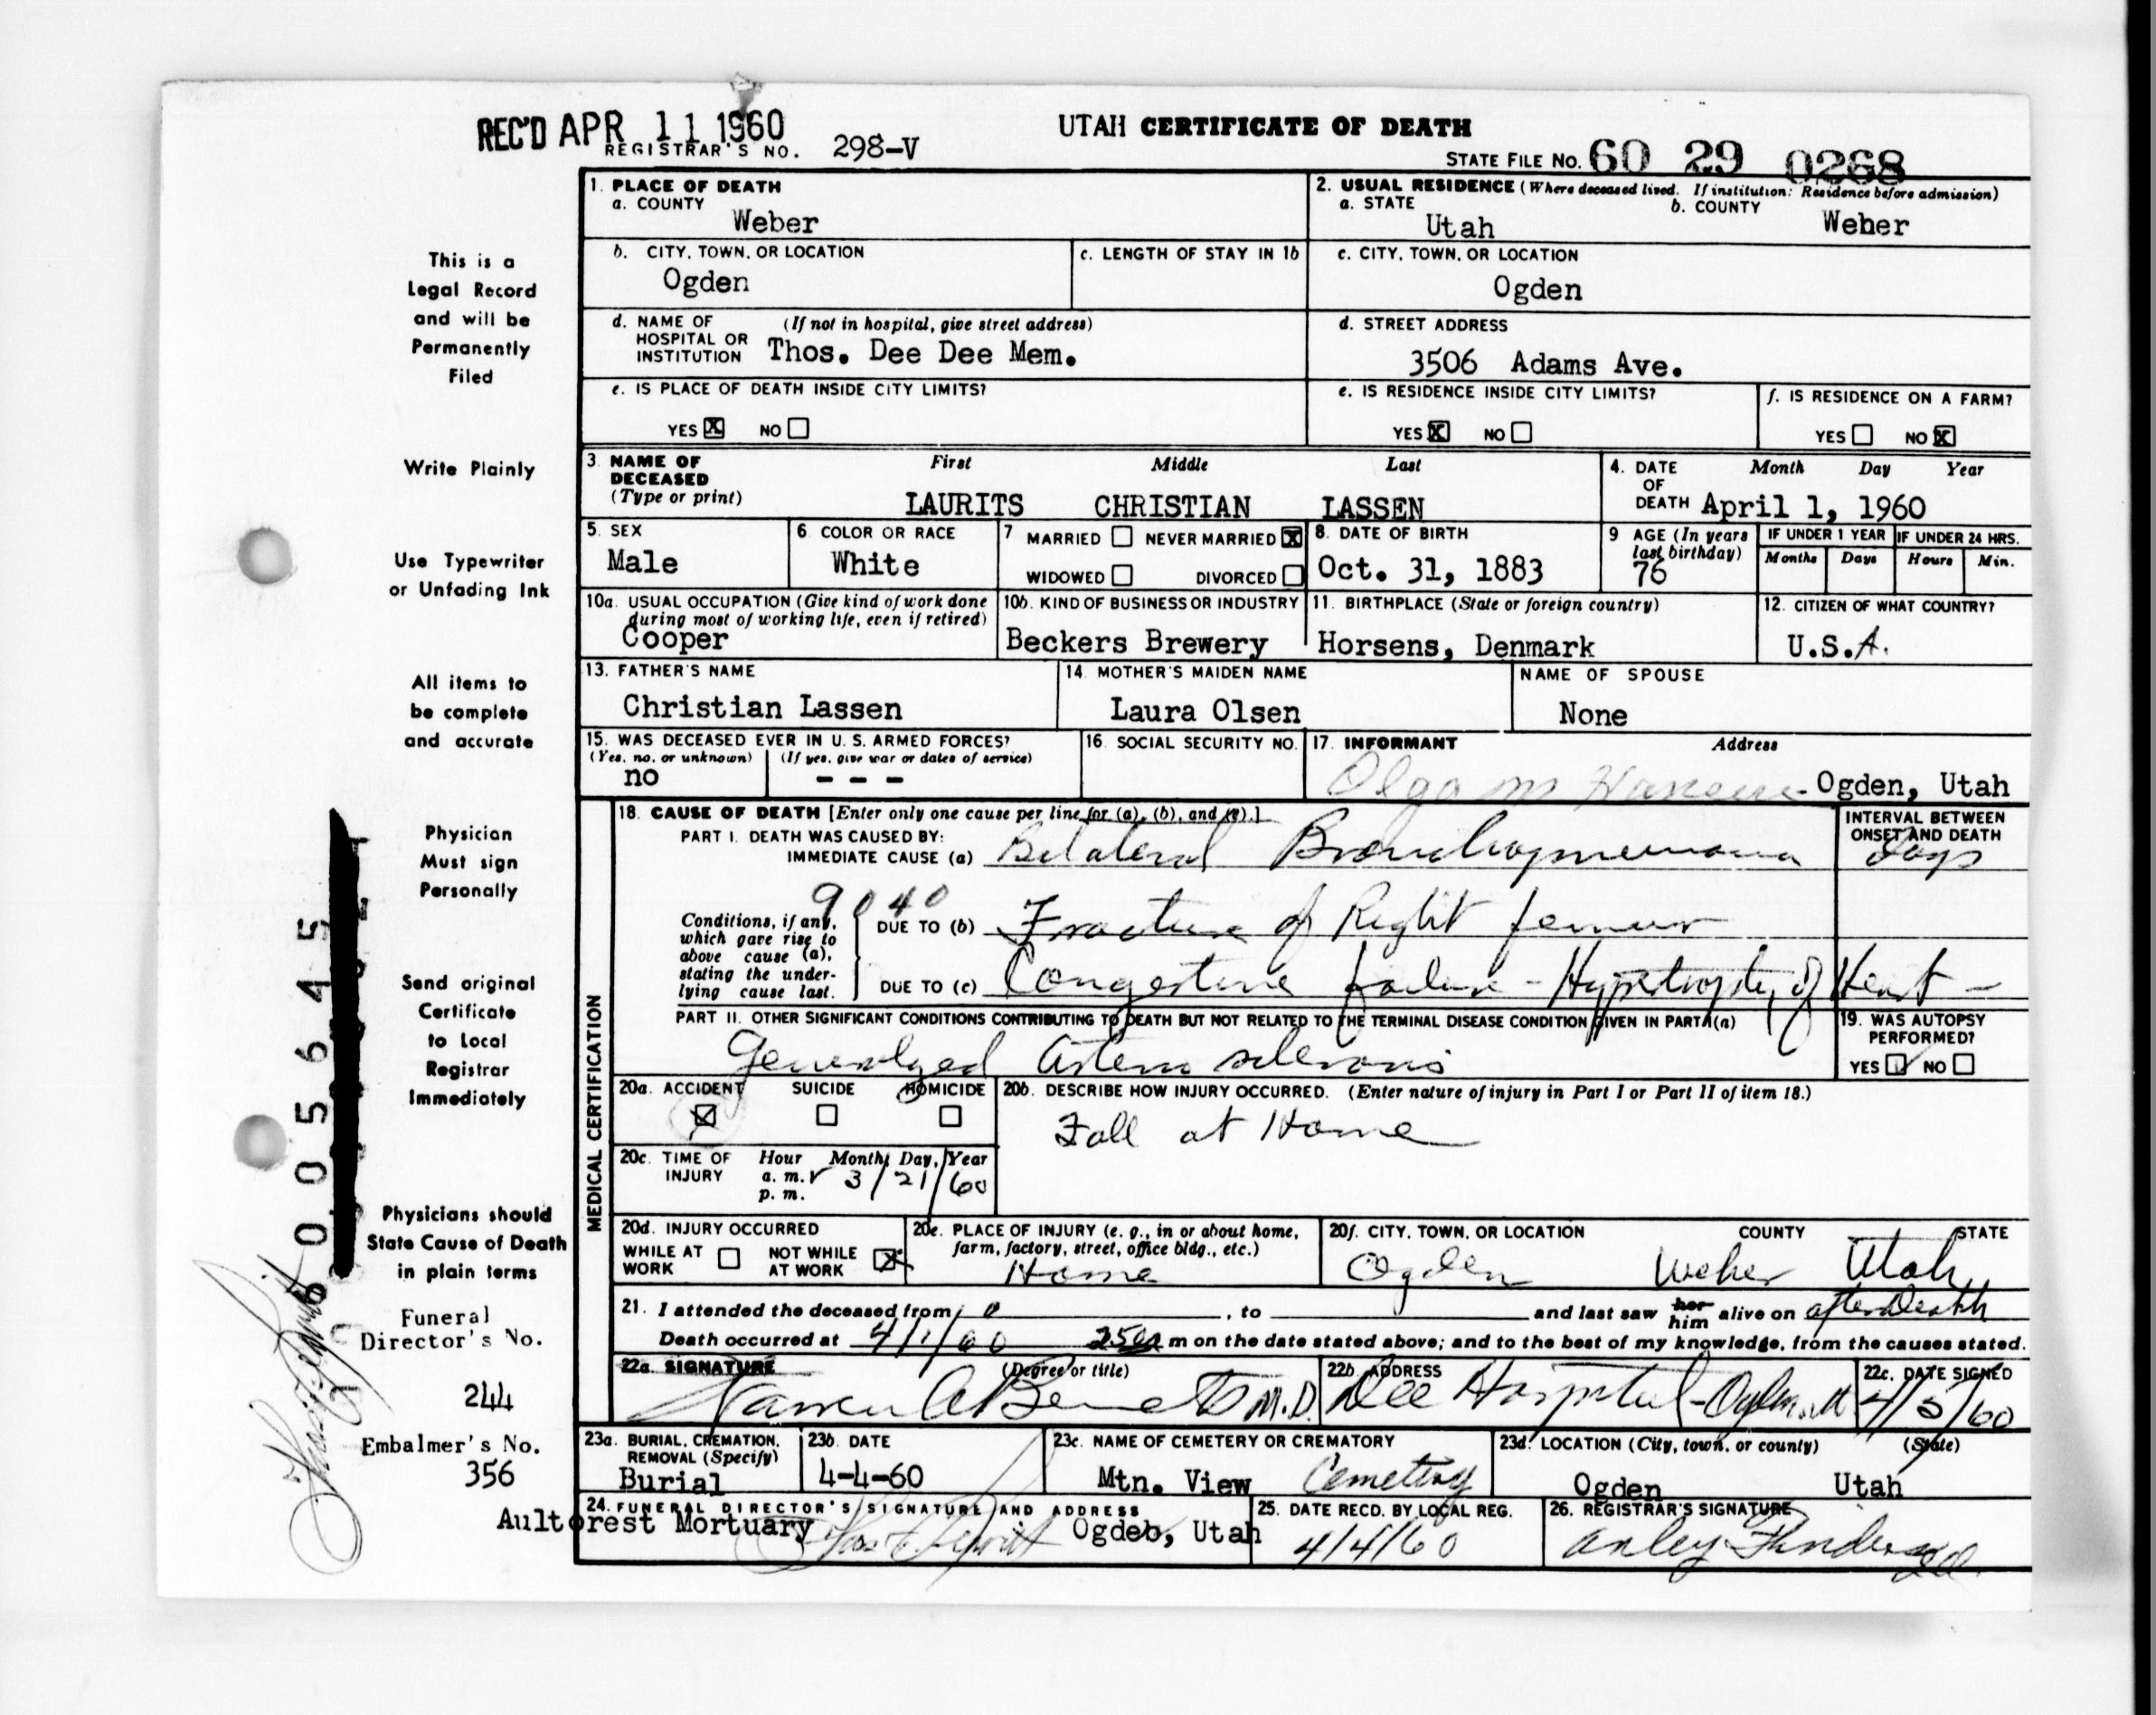 REC'D APR 11 1960
UTAH CERTIFICATE OF DEATH
REGISTRAR'S NO. 298-V
STATE FILE No. 60 29 0268
This is a
Legal Record
and will be
Permanently
Filed
Write Plainly
Use Typewriter
or Unfading Ink
All items to
be complete
and accurate
Physician
Must sign
Personally
Send original
Certificate
to Local
Registrar
Immediately
Physicians should
State Cause of Death
in plain terms
Funeral
Director's No.
244
Embalmer's No.
356
005645
1. PLACE OF DEATH
a. COUNTY
Weber
2. USUAL RESIDENCE (Where deceased lived. If institution: Residence before admission)
a. STATE b. COUNTY
Utah Weber
b. CITY, TOWN, OR LOCATION
Ogden
c. LENGTH OF STAY IN 1b
c. CITY, TOWN, OR LOCATION
Ogden
d. NAME OF (If not in hospital, give street address)
HOSPITAL OR
INSTITUTION Thos. Dee Dee Mem.
d. STREET ADDRESS
3506 Adams Ave.
e. IS PLACE OF DEATH INSIDE CITY LIMITS?
YES X NO
e. IS RESIDENCE INSIDE CITY LIMITS?
YES X NO
f. IS RESIDENCE ON A FARM?
YES NO X
3. NAME OF First Middle Last
DECEASED
(Type or print) LAURITS CHRISTIAN LASSEN
4. DATE Month Day Year
OF
DEATH April 1, 1960
5. SEX
Male
6 COLOR OR RACE
White
7 MARRIED NEVER MARRIED X
WIDOWED DIVORCED
8. DATE OF BIRTH
Oct. 31, 1883
9 AGE (In years
last birthday)
76
IF UNDER 1 YEAR IF UNDER 24 HRS.
Months Days Hours Min.
10a. USUAL OCCUPATION (Give kind of work done
during most of working life, even if retired)
Cooper
10b. KIND OF BUSINESS OR INDUSTRY
Beckers Brewery
11. BIRTHPLACE (State or foreign country)
Horsens, Denmark
12. CITIZEN OF WHAT COUNTRY?
U.S.A.
13. FATHER'S NAME
Christian Lassen
14. MOTHER'S MAIDEN NAME
Laura Olsen
NAME OF SPOUSE
None
15. WAS DECEASED EVER IN U. S. ARMED FORCES?
(Yes, no, or unknown) (If yes, give war or dates of service)
no - - -
16. SOCIAL SECURITY NO.
17. INFORMANT Address
Olga M Hansen - Ogden, Utah
MEDICAL CERTIFICATION
18. CAUSE OF DEATH [Enter only one cause per line for (a), (b), and (c).]
PART I. DEATH WAS CAUSED BY:
IMMEDIATE CAUSE (a) Bilateral Bronchopneumonia
INTERVAL BETWEEN
ONSET AND DEATH
days
9040
Conditions, if any,
which gave rise to
above cause (a),
stating the under-
lying cause last.
DUE TO (b) Fracture of Right femur
DUE TO (c) Congestive failure - Hypertrophy of Heart -
PART II. OTHER SIGNIFICANT CONDITIONS CONTRIBUTING TO DEATH BUT NOT RELATED TO THE TERMINAL DISEASE CONDITION GIVEN IN PART I(a)
Generalized Arterio sclerosis
19. WAS AUTOPSY
PERFORMED?
YES NO
20a. ACCIDENT SUICIDE HOMICIDE
X
20b. DESCRIBE HOW INJURY OCCURRED. (Enter nature of injury in Part I or Part II of item 18.)
Fall at Home
20c. TIME OF Hour Month, Day, Year
INJURY a. m. 3/21/60
p. m.
20d. INJURY OCCURRED
WHILE AT WORK NOT WHILE AT WORK X
20e. PLACE OF INJURY (e. g., in or about home,
farm, factory, street, office bldg., etc.)
Home
20f. CITY, TOWN, OR LOCATION COUNTY STATE
Ogden Weber Utah
21. I attended the deceased from , to and last saw her him alive on after Death
Death occurred at 4/1/60 m on the date stated above; and to the best of my knowledge, from the causes stated.
22a. SIGNATURE (Degree or title)
M.D.
22b. ADDRESS
Dee Hospital - Ogden, Ut
22c. DATE SIGNED
4/5/60
23a. BURIAL, CREMATION,
REMOVAL (Specify)
Burial
23b. DATE
4-4-60
23c. NAME OF CEMETERY OR CREMATORY
Mtn. View Cemetery
23d. LOCATION (City, town, or county) (State)
Ogden Utah
24. FUNERAL DIRECTOR'S SIGNATURE AND ADDRESS
Aultorest Mortuary Ogdeb, Utah
25. DATE RECD. BY LOCAL REG.
4/4/60
26. REGISTRAR'S SIGNATURE